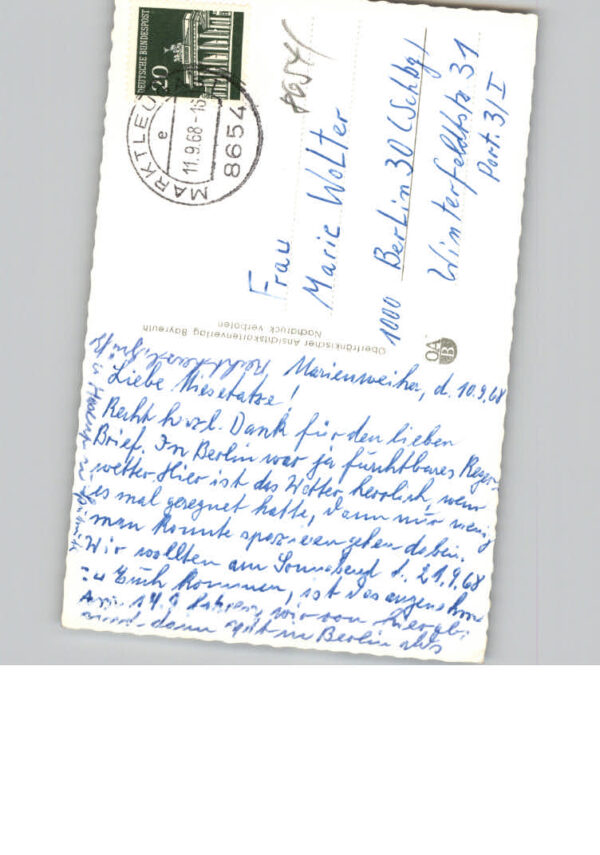 DEUTSCHE BUNDESPOST
20
MARKTLEU
e
11.9.68-16
8654
8654
Frau
Marie Wolter
1000 Berlin 30 (Schbg)
Winterfeldtstr 31
Port. 3/I
Oberfränkischer Ansichtskartenverlag Bayreuth
Nachdruck verboten
OA
B
Marienweiher, d. 10.9.68
Liebe Miesetatze!
Recht herzl. Dank für den lieben
Brief. In Berlin war ja furchtbares Regen-
wetter. Hier ist das Wetter herrlich, wenn
es mal geregnet hatte, dann nur wenig
man konnte spazieren gehen dabei.
Wir wollten am Sonnabend d. 21.9.68
zu Euch kommen, ist das angenehm
Am 14.9 fahren wir von hier ab
und dann in Berlin
Recht herzliche Grüße